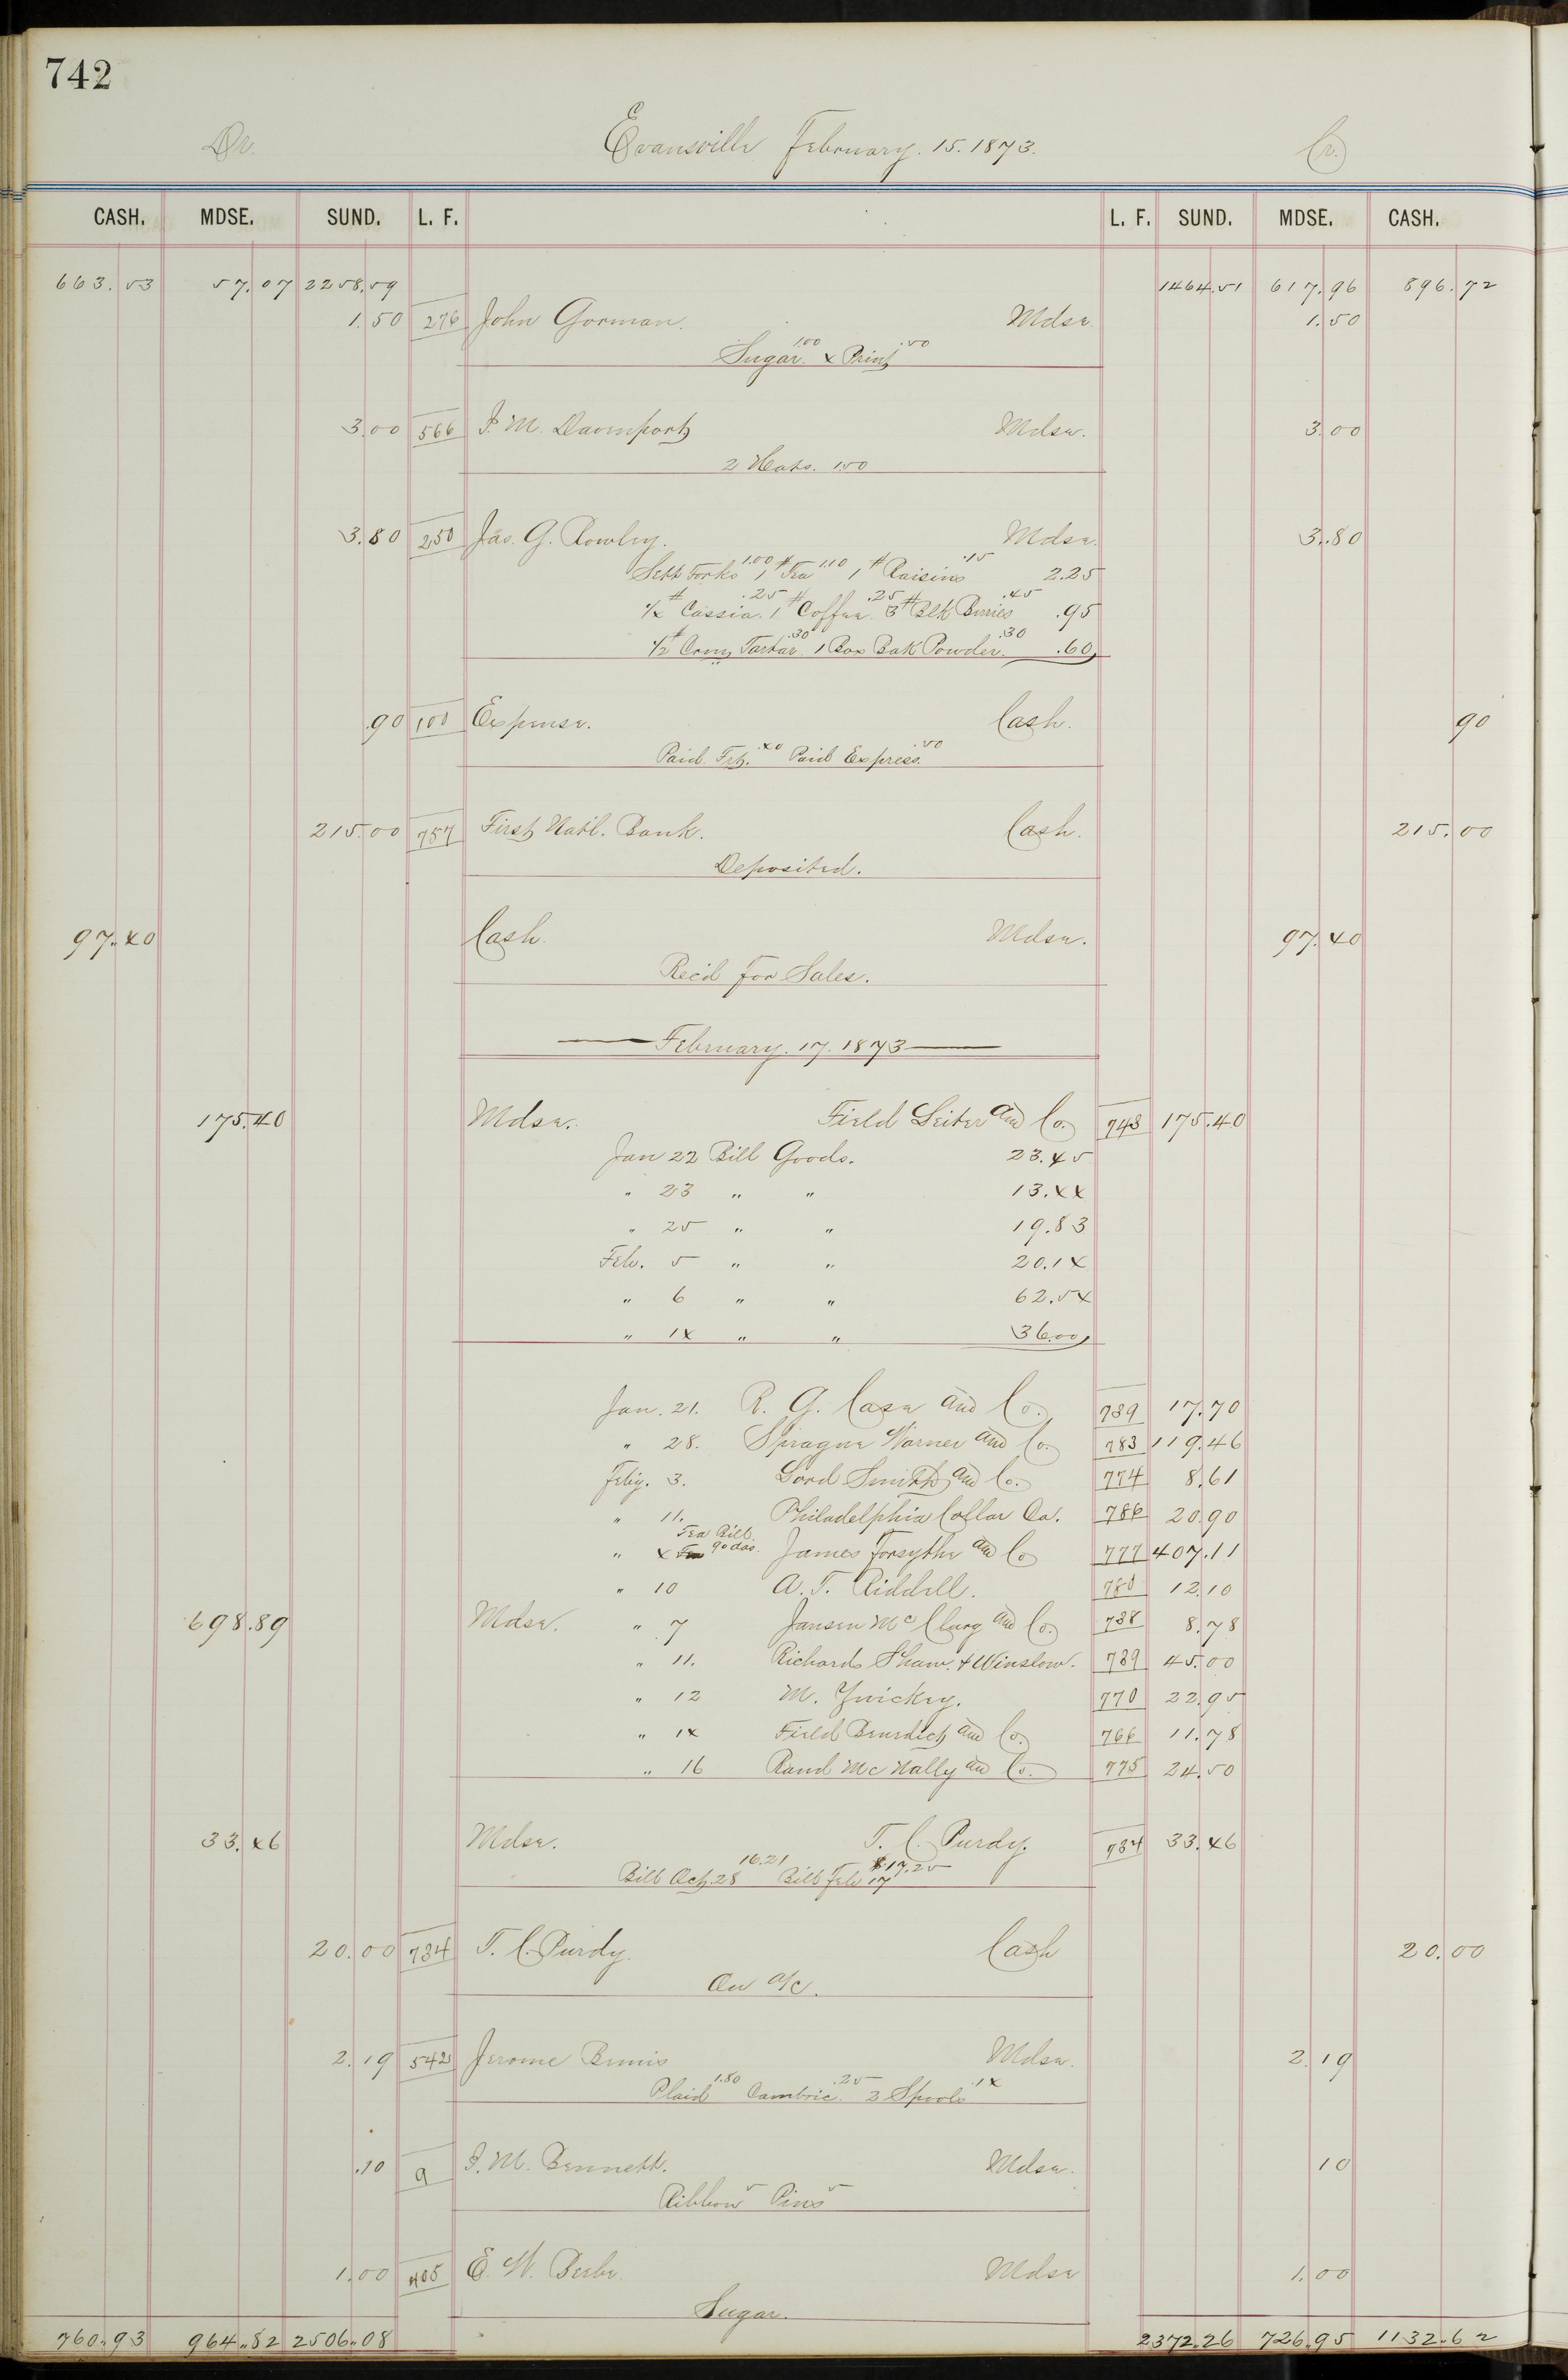 742
Dr. Evansville February. 15. 1873. Cr.
CASH. MDSE. SUND. L. F. L. F. SUND. MDSE. CASH.
663.53 57.07 2258.59 1464.51 617.96 896.72
1.50 276 John Gorman. Mdse. 1.50
Sugar. 1.00 & Print .50
3.00 566 J. M. Davenport Mdse. 3.00
2 Hats. 1.50
3.80 250 Jas. G. Rowley. Mdse. 3.80
Sett Forks 1.00 1 # Tea 1.10 1 # Raisins .15 2.25
1/2 # Cassia. .25 1 # Coffee. .25 3 # Blk Berries .45 .95
1/2 # Crm Tartar .30 1 Box Bak Powder. .30 .60
.90 100 Expense. Cash. 90
Paid Frt. .40 Paid Express. .50
215.00 757 First Nat'l. Bank. Cash. 215.00
Deposited.
97.40 Cash. Mdse. 97.40
Rec'd for Sales.
February. 17. 1873
175.40 Mdse. Field Leiter and Co. 743 175.40
Jan 22 Bill Goods. 23.45
" 23 " " 13.44
" 25 " " 19.83
Feb. 5 " " 20.14
" 6 " " 62.54
" 14 " " 36.00
Jan. 21. R. G. Case and Co. 739 17.70
" 28. Sprague Warner and Co. 783 119.46
Feby. 3. Lord Smith and Co. 774 8.61
" 11. Philadelphia Collar Co. 786 20.90
Tea Bill.
" 4 90 das. James Forsythe and Co 777 407.11
" 10 A. T. Riddell. 780 12.10
698.89 Mdse. " 7 Jansen McClurg and Co. 738 8.78
" 11. Richards Shaw. & Winslow. 739 45.00
" 12 M. Zwickey. 770 22.95
" 14 Field Benedict and Co. 766 11.78
" 16 Rand McNally and Co. 775 24.50
33.46 Mdse. T. C. Purdy. 734 33.46
Bill Oct. 28 16.21 Bill Feb 17 17.25
20.00 734 T. C. Purdy. Cash 20.00
On a/c.
2.19 542 Jerome Bemis Mdse. 2.19
Plaid 1.80 Cambric. .25 2 Spools .14
.10 9 J. M. Bennett. Mdse. 10
Ribbon 5 Pins 5
1.00 405 E. W. Beebe. Mdse 1.00
Sugar.
760.93 964.82 2506.08 2372.26 726.95 1132.62